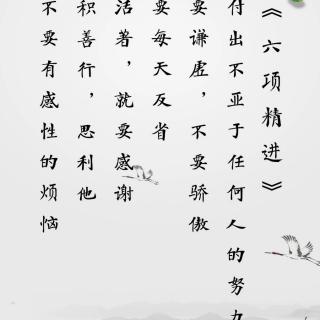 《六项精进》
付出不亚于任何人的努力
要谦虚，不要骄傲
要每天反省
活著，就要感谢
积善行，思利他
不要有感性的烦恼